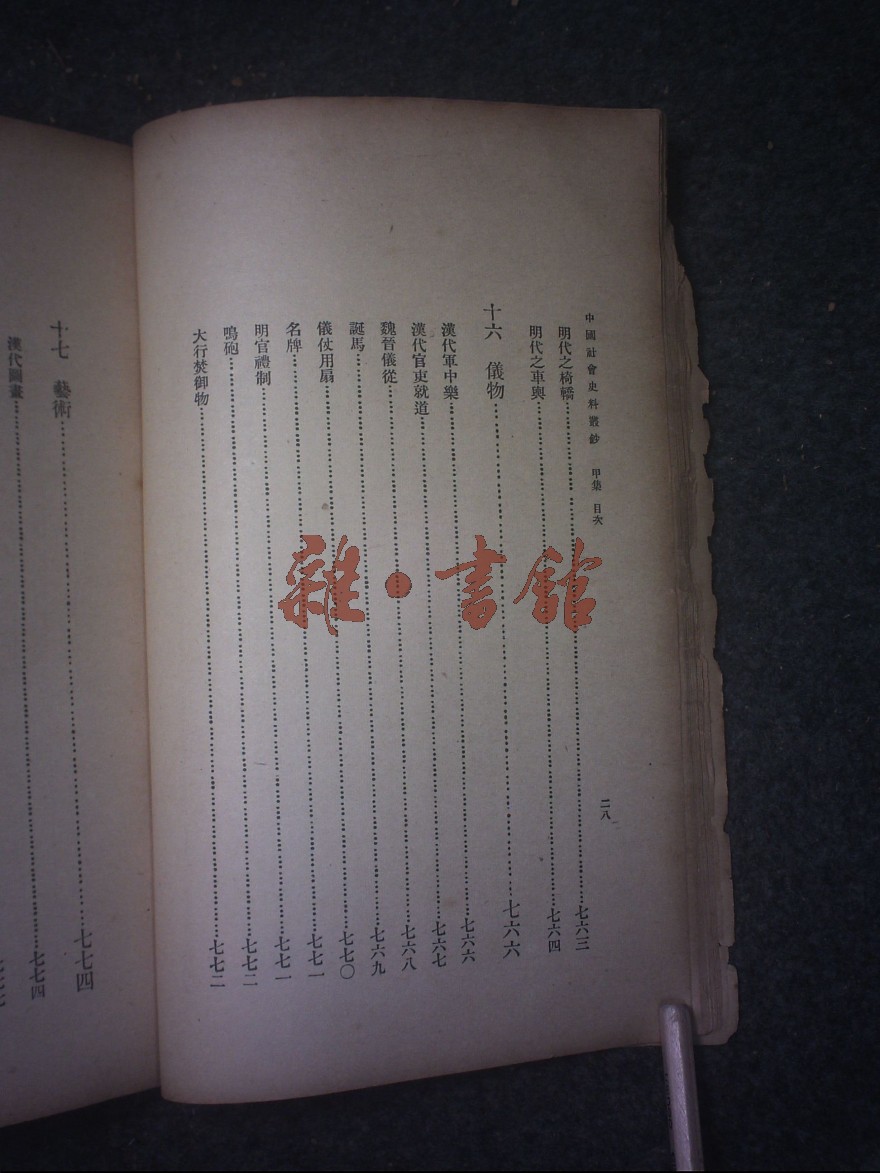 中國社會史料叢鈔 甲集 目次 二八
明代之椅轎……七六三
明代之車輿……七六四
十六 儀物……七六六
漢代軍中樂……七六六
漢代官吏就道……七六七
魏晉儀從……七六八
誕馬……七六九
儀仗用扇……七七〇
名牌……七七一
明官禮制……七七一
鳴砲……七七二
大行焚御物……七七二
十七 藝術……七七四
漢代圖畫……七七四
雜·書館